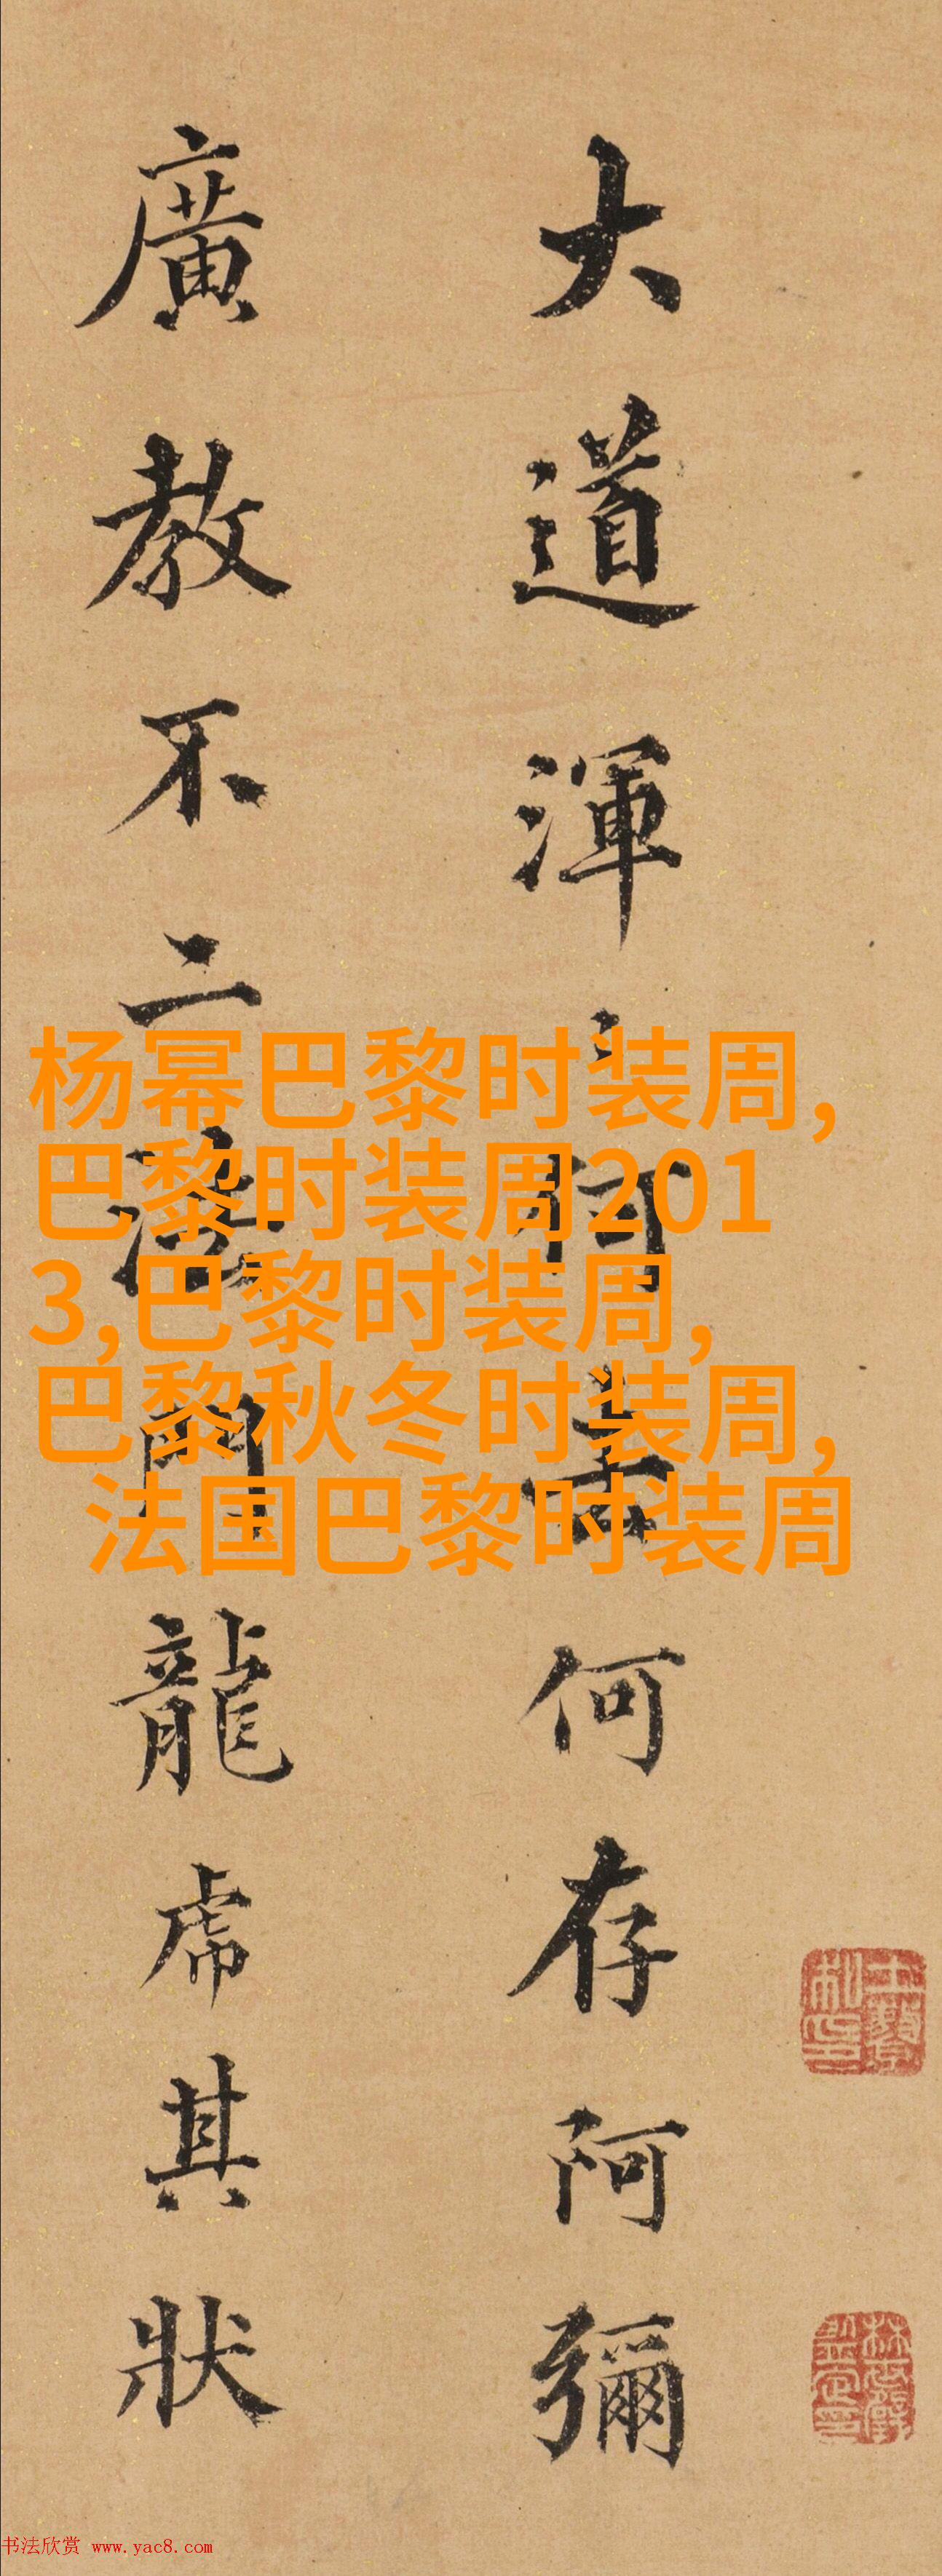 大道渾何存阿彌
廣教不二法門龍虎其狀
杨幂巴黎时装周,
巴黎时装周201
3,巴黎时装周,
巴黎秋冬时装周,
法国巴黎时装周
书法欣赏 www.yac8.com